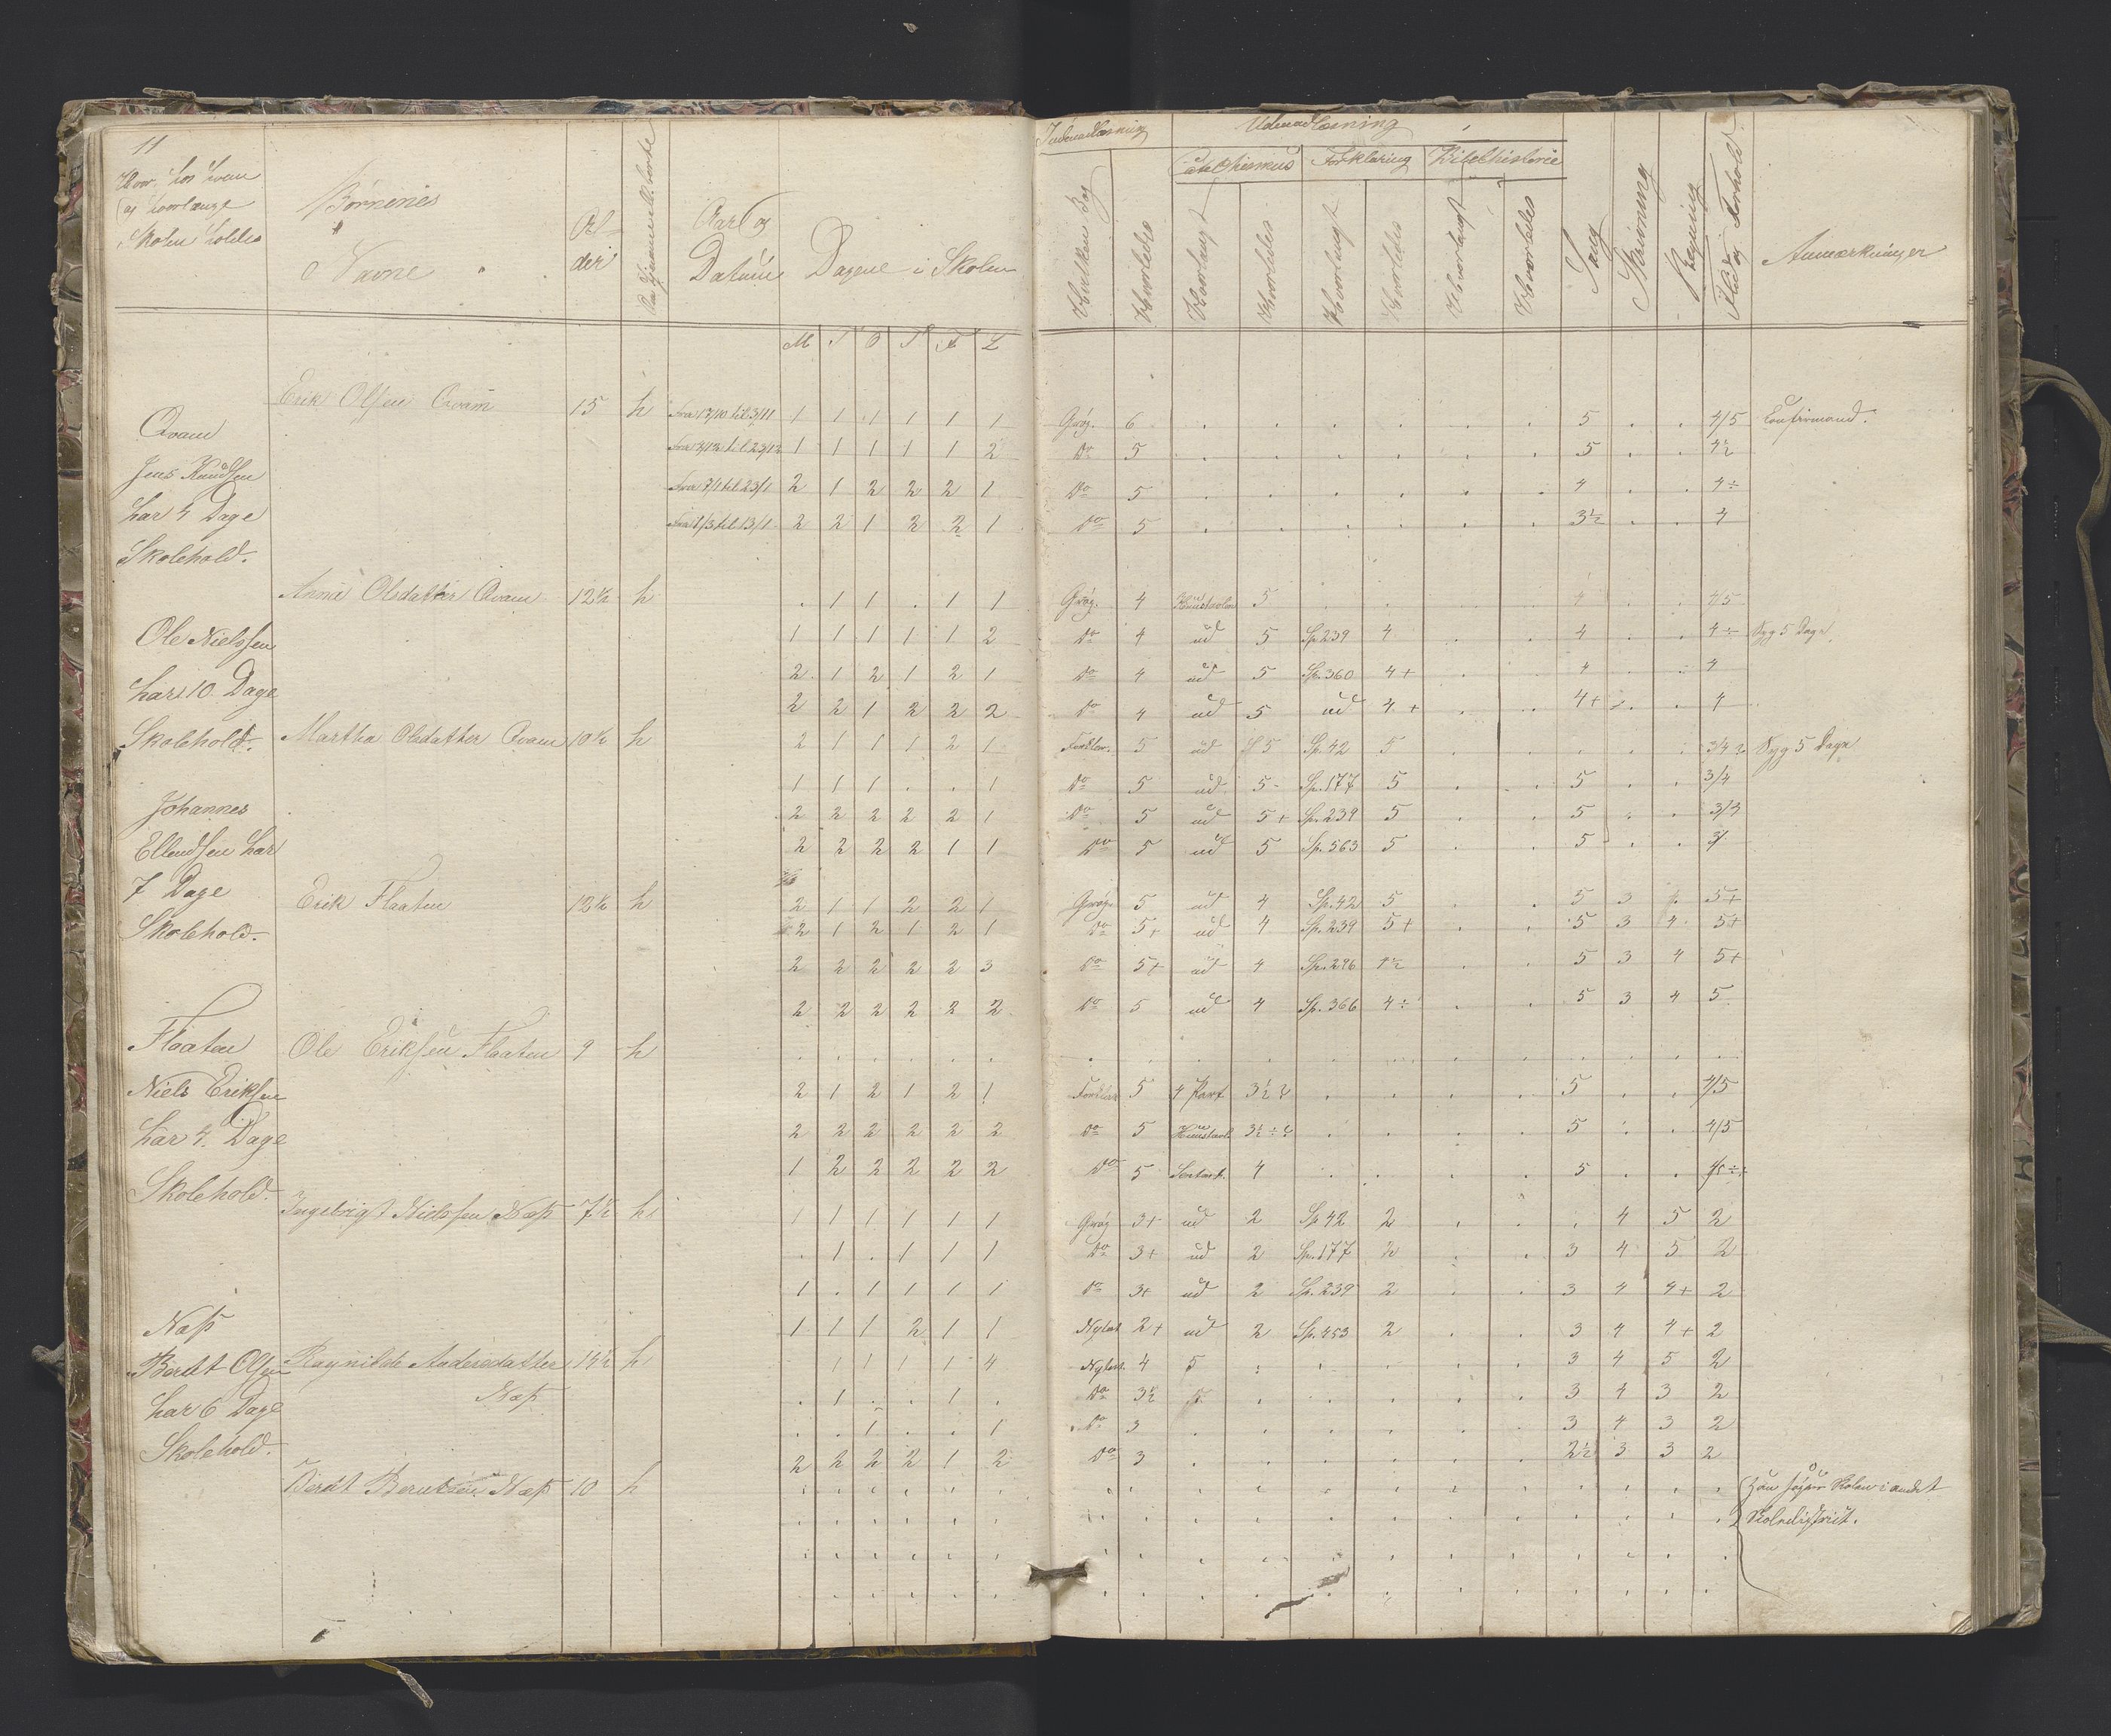 11
Hvor, hos hvem
og hvorlænge
Skolen holdes
Børnenes
Navne
Al-
der
Aar og
Datum
Dagene i Skolen
M T O T F L
Indenadlæsning
Udenadlæsning
Catechismus Forklaring Bibelhistorie
Hvilken Bog
Hvorledes
Hvorlangt
Hvorledes
Hvorlangt
Hvorledes
Hvorlangt
Hvorledes
Sang
Skrivning
Regning
Flid og Forhold
Anmærkninger
Erik Olsen Qvam 15 h Fra 13/10 til 3/11 1 1 1 1 1 1 Grøg. 6 . . . . . . 5 . . 4/5 Confirmand.
Qvam
Fra 3/12 til 23/12 1 1 1 1 1 2 Do 5 . . . . . . 5 . . 4½
Jens Knudsen
Fra 7/1 til 23/1 2 1 2 2 2 1 Do 5 . . . . . . 4 . . 4÷
har 4 Dage
Fra 1/3 til 13/1 2 2 1 2 2 1 Do 5 . . . . . . 3½ . . 4
Skolehold.
Anna Olsdatter Qvam 12½ h . 1 1 . 1 1 Grøg. 4 Huustavlen 5 . . . . 4 . . 4/5
Ole Nielssen
1 1 1 1 1 2 Do 4 ud 5 Sp. 239 4 . . 4 . . 4÷ Syg 5 Dage
2 1 2 1 2 1 Do 4 ud 5 Sp. 360 4+ . . 4 . . 4
har 10 Dage
2 2 1 2 2 2 Do 4 ud 5 ud 4+ . . 4+ . . 4
Skolehold. Martha Olsdatter Qvam 10½ h 2 1 1 1 2 1 Forklar. 5 ud 5 Sp. 42 5 . . . . . 3/4 Syg 5 Dage
1 1 1 . . 1 Do 5 ud 5- Sp. 177 5 . . 5 . . 3/4
Johannes
2 2 2 2 2 1 Do 5 ud 5+ Sp. 239 5 . . 5 . . 3/4
Ellendsen har
2 2 2 2 1 1 Do 5 ud 5 Sp. 563 5 . . 5 . . 3
7 Dage
Erik Flaaten 12½ h 2 1 1 2 2 1 Grøg. 5 ud 4 Sp. 42 5 . . 5 3 . 5+
Skolehold.
2 1 2 1 2 1 Do 5+ ud 4 Sp. 239 5+ . . 5 3 4 5+
2 2 2 2 2 3 Do 5+ ud 4 Sp. 296 4½ . . 5 3 4 5+
2 2 2 2 2 2 Do 5 ud 4 Sp. 366 4÷ . . 5 3 4 5
Flaaten
Ole Eriksen Flaaten 9 h . . . . . .
Niels Eriksen
2 1 2 1 2 1 Forklar 5 4 Part 3½ . . . . 5 . . 4/5
har 4 Dage
2 2 2 2 2 2 Do 5 Huustavl. 3½÷ . . . . 5 . . 4/5
1 2 2 2 2 2 Do 5 4 . . . . 5 . .
Skolehold.
Ingebrigt Nielssen Næss 7½ h 1 1 1 1 1 1 Grøg 3+ ud 2 Sp 42 2 . . . 4 5 2
. 1 . 1 1 1 Do 3+ ud 2 Sp. 177 2 . . 3 4 5 2
1 . 1 1 1 1 Do 3+ ud 2 Sp. 239 2 . . 3 4 4+ 2
Næss
1 1 1 2 1 1 Nytest 2+ ud 2 Sp. 453 2 . . 3 4 4+ 2
Berdt Olsen
Ragnilde Andersdatter 14½ h . 1 1 1 1 4 Nytest. 4 5 . . . . . 3 4 5 2
Næss
har 6 Dage
. 1 . . 1 . Do 3½ . . . . . 3 4 3 2
. . 1 . . 1 Do 3 . . . . . . 3 4 3 2
Skolehold.
2 2 2 2 1 2 Do 3 . . . . . . 2½ 3 3 2
Berdt Berntsen Næss 10 h . . . . . . Han søger Skolen i andet
Skoledistrict.